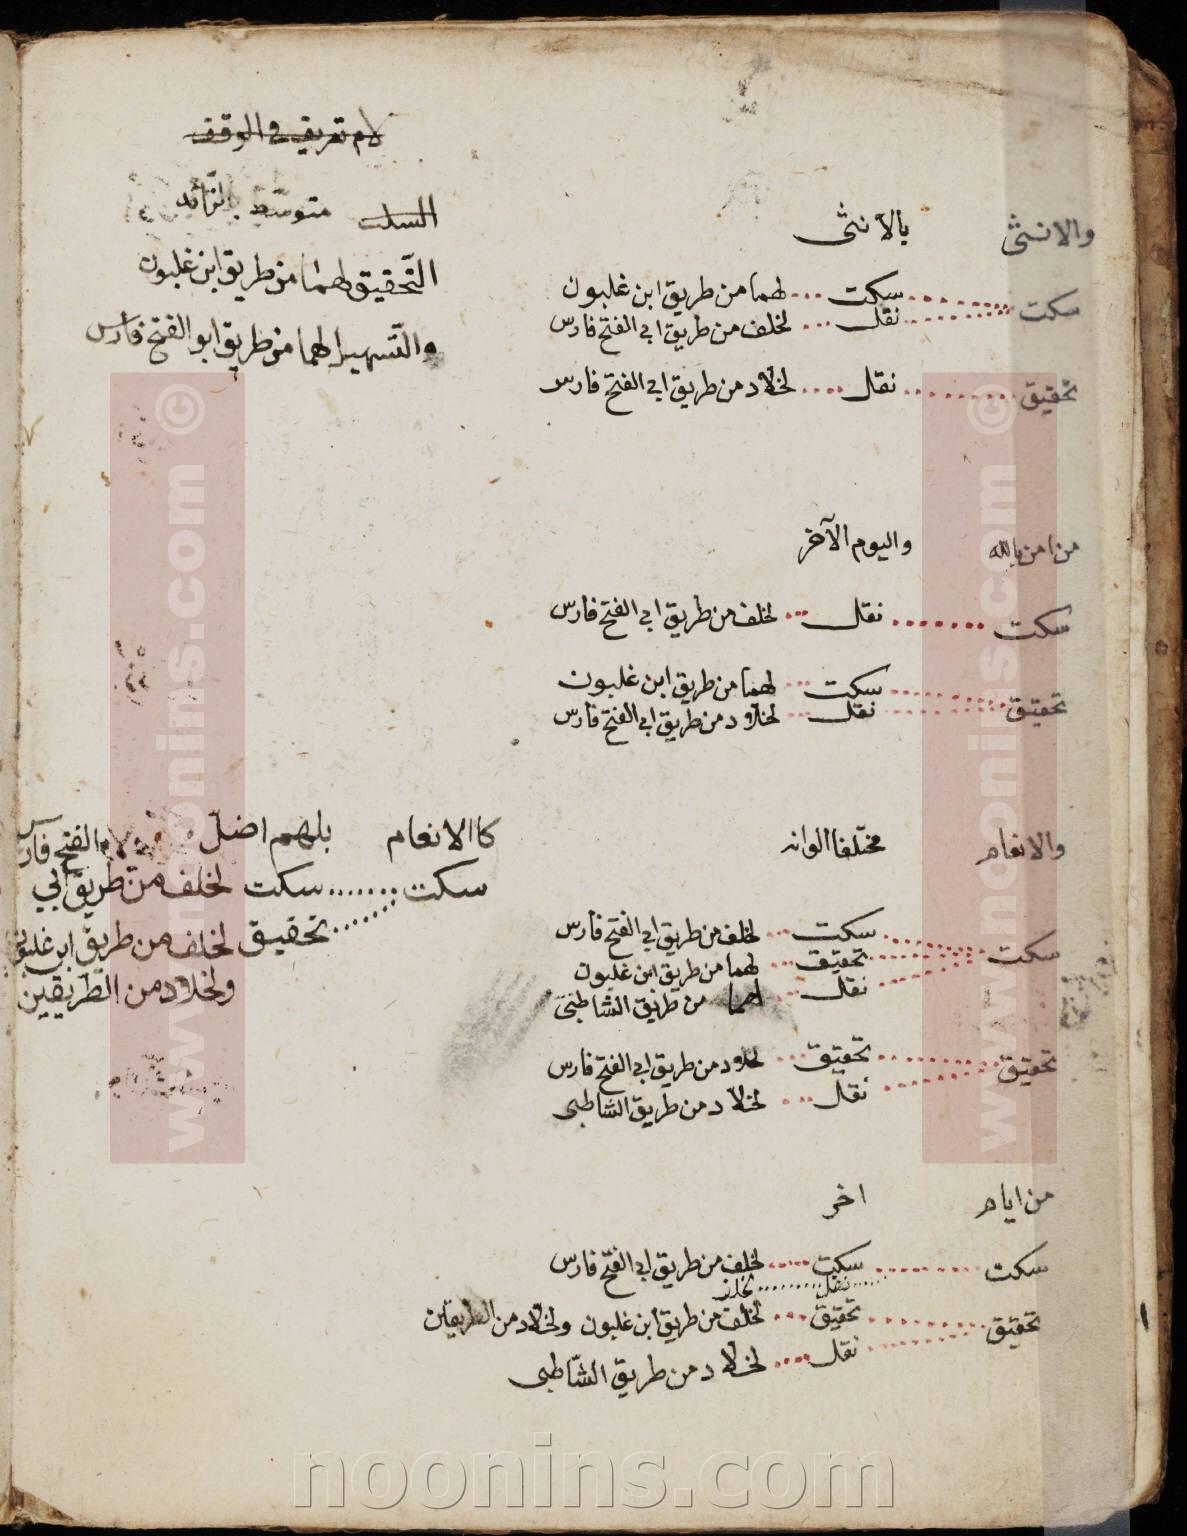 لام تعريف في الوقف
السكت متوسّط بالزّائد
التّحقيق لهما من طريق ابن غلبون
والتّسهيل لهما من طريق ابو الفتح فارس
والانثى بالانثى
سكت سكت لهما من طريق ابن غلبون
نقل لخلف من طريق ابي الفتح فارس
تحقيق نقل لخلاد من طريق ابي الفتح فارس
من امن بالله واليوم الآخر
سكت نقل لخلف من طريق ابي الفتح فارس
تحقيق سكت لهما من طريق ابن غلبون
نقل لخلاد من طريق ابي الفتح فارس
والانعام مختلفا الوانه
سكت سكت لخلف من طريق ابي الفتح فارس
تحقيق لهما من طريق ابن غلبون
نقل لهما من طريق الشاطبى
تحقيق تحقيق لخلاد من طريق ابي الفتح فارس
نقل لخلاد من طريق الشاطبى
كالانعام بلهم اضلّ
سكت سكت لخلف من طريق ابي الفتح فارس
تحقيق لخلف من طريق ابن غلبون
ولخلاد من الطّريقين
من ايام اخر
سكت سكت لخلف من طريق ابي الفتح فارس
نقل لخلف
تحقيق تحقيق لخلف من طريق ابن غلبون ولخلاد من الطريقين
نقل لخلاد من طريق الشّاطبى
www.noonins.com ©
www.noonins.com ©
noonins.com